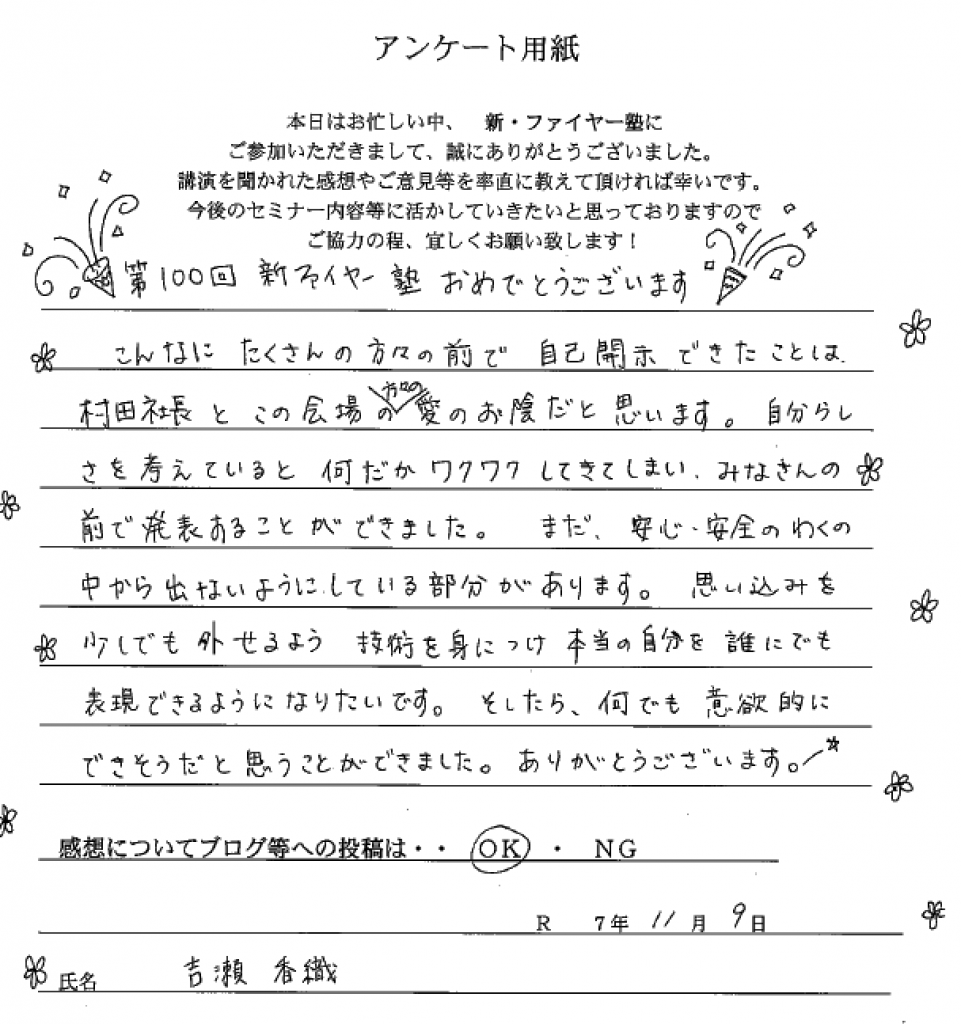 アンケート用紙
本日はお忙しい中、 新・ファイヤー塾に
ご参加いただきまして、誠にありがとうございました。
講演を聞かれた感想やご意見等を率直に教えて頂ければ幸いです。
今後のセミナー内容等に活かしていきたいと思っておりますので
ご協力の程、宜しくお願い致します！
第100回 新ファイヤー塾 おめでとうございます
こんなに たくさんの方々の前で 自己開示できたことは、
村田社長と この会場の方々の愛のお陰だと思います。 自分らし
さを考えていると 何だかワクワクしてきてしまい、みなさんの
前で発表することができました。 まだ、安心・安全のわくの
中から出ないようにしている部分があります。 思い込みを
少しでも外せるよう 技術を身につけ 本当の自分を誰にでも
表現できるようになりたいです。 そしたら、何でも意欲的に
できそうだと思うことができました。ありがとうございます。
感想についてブログ等への投稿は・・ OK ・ NG
R 7年 11月 9日
氏名 吉瀬 香織